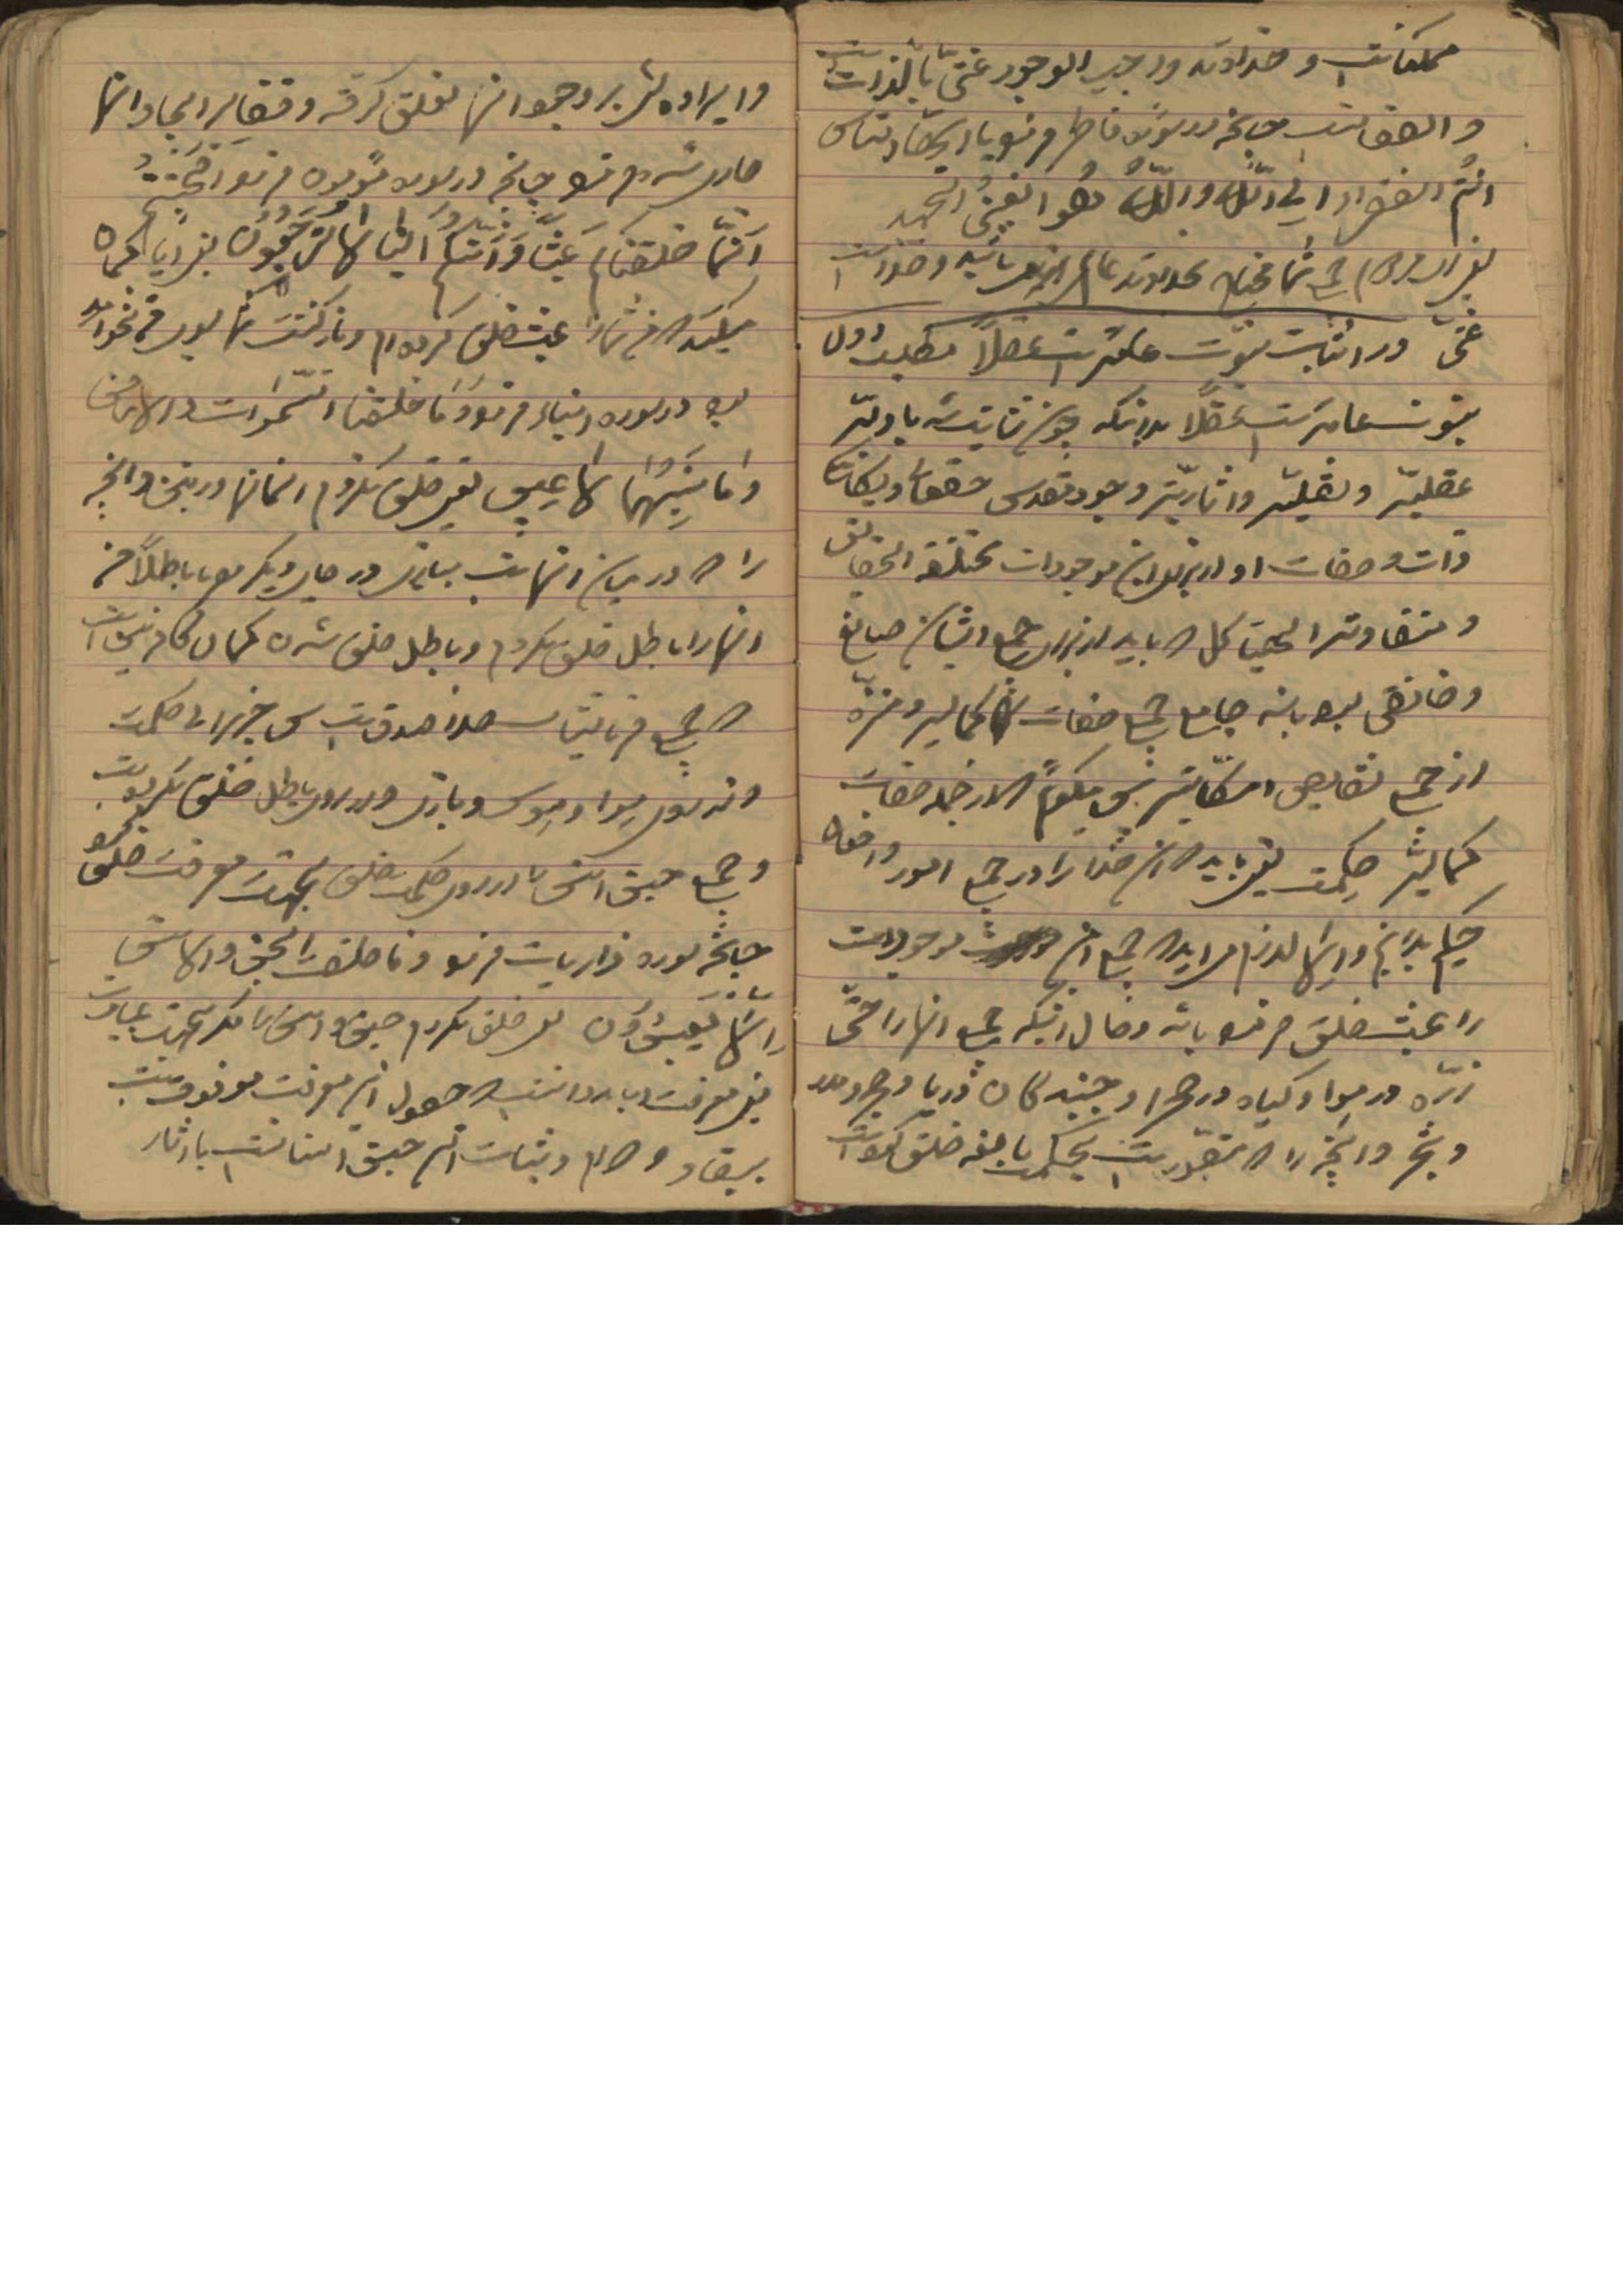 ممکناتست و خداوند واجب الوجود غنیّ بالذات
و الصفاتست چنانچه در سوره فاطر فرمود یا ایّها النّاس
انتُم الفقراء الی اللّه واللّهُ هُو الغنیُّ الحمید
یعنی ای مردم جمیع شما محتاج بخداوند عالم میباشید و خداست
غنیّ در اثبات نبوّت عامّه است عقلاً مطلب اوّل
نبوّت عامّه است عقلاً بدانکه چون ثابت شد بادلّه
عقلیّه و نقلیّه و آثاریّه وجود مقدس حقتعالی و یگانگی
ذات و صفات او از برای این موجودات مختلفة الحقایق
و متفاوتة الهیاکل که باید از برای جمیع ایشان صانع
و خالقی بوده باشد جامع جمیع صفات کمالیه و منزّه
از جمیع نقایص امکانیّه پس میگویم که از جمله صفات
کمالیّه حکمت یعنی باید که آن خدا را در جمیع امور و افعال
حکیم بدانیم والّا لازم میاید که جمیع این موجودات
را عبث خلق فرموده باشد و حال آنکه جمیع آنها را حتّی
ذرّه در هوا و گیاه در صحرا و جنبندگان دریا و حجر و مدر
و شجر و آنچه را که متصوّر است بحکمت بالغه خلق نموده است
و اراده‌اش بر وجود آنها تعلّق گرفته و قضایش بر ایجاد آنها
جاری شده فرموده چنانچه در سوره مؤمنون فرموده اَفَحَسِبْتُم
اَنَّما خلقناکُم عَبَثاً وَاَنَّکُم اِلَینا لاتُرجَعُون یعنی آیا گمان
میکنید که من شما را عبث خلق کرده‌ام و بازگشت شما بسوی من نخواهد
بود در سوره انبیاء فرمود وَما خلقنا السّموات والارض
وَما بَینَهُما لاعِبین یعنی خلق نکردم آسمانها و زمین و آنچه
را که در میان آنهاست ببازی در جای دیگر میفرماید باطلاً من
آنها را باطل خلق نکردم و باطل خلق شدن گمان کافرین است
که جمیع فرمایشات خدا صدق است پس چیزی را بی حکمت
و از روی هوا و هوس و بازی و از روی باطل خلق نکرده است
و جمیع جن و انس را از روی حکمت خلق بجهت معرفت خلق نموده
چنانچه سوره ذاریات فرمود وَما خلقتُ الجنّ والانس
اِلّا لِیَعبُدُون یعنی خلق نکردم جن و انس را مگر بجهت عبادت
یعنی معرفت و باید دانست که حصول این معرفت موقوفست
ببقاء و دوام و ثبات این جن و انسانست با آثار